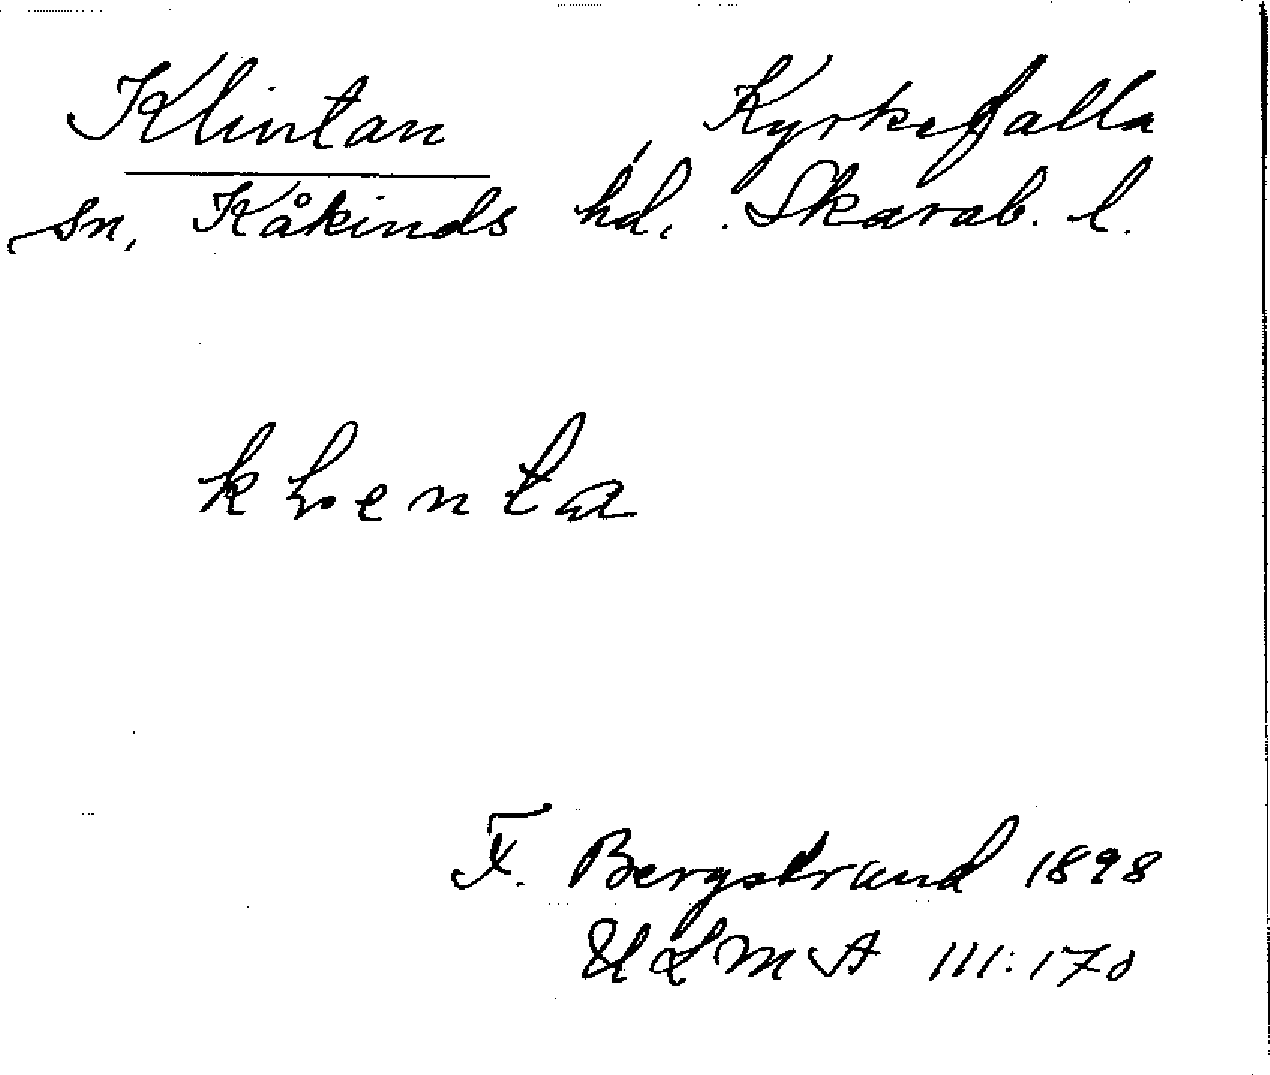 Klintan, Kyrkefalla
sn, Kåkinds hd, Skarab. l.
klenta
F. Bergstrand 1898
ULMA 111:170